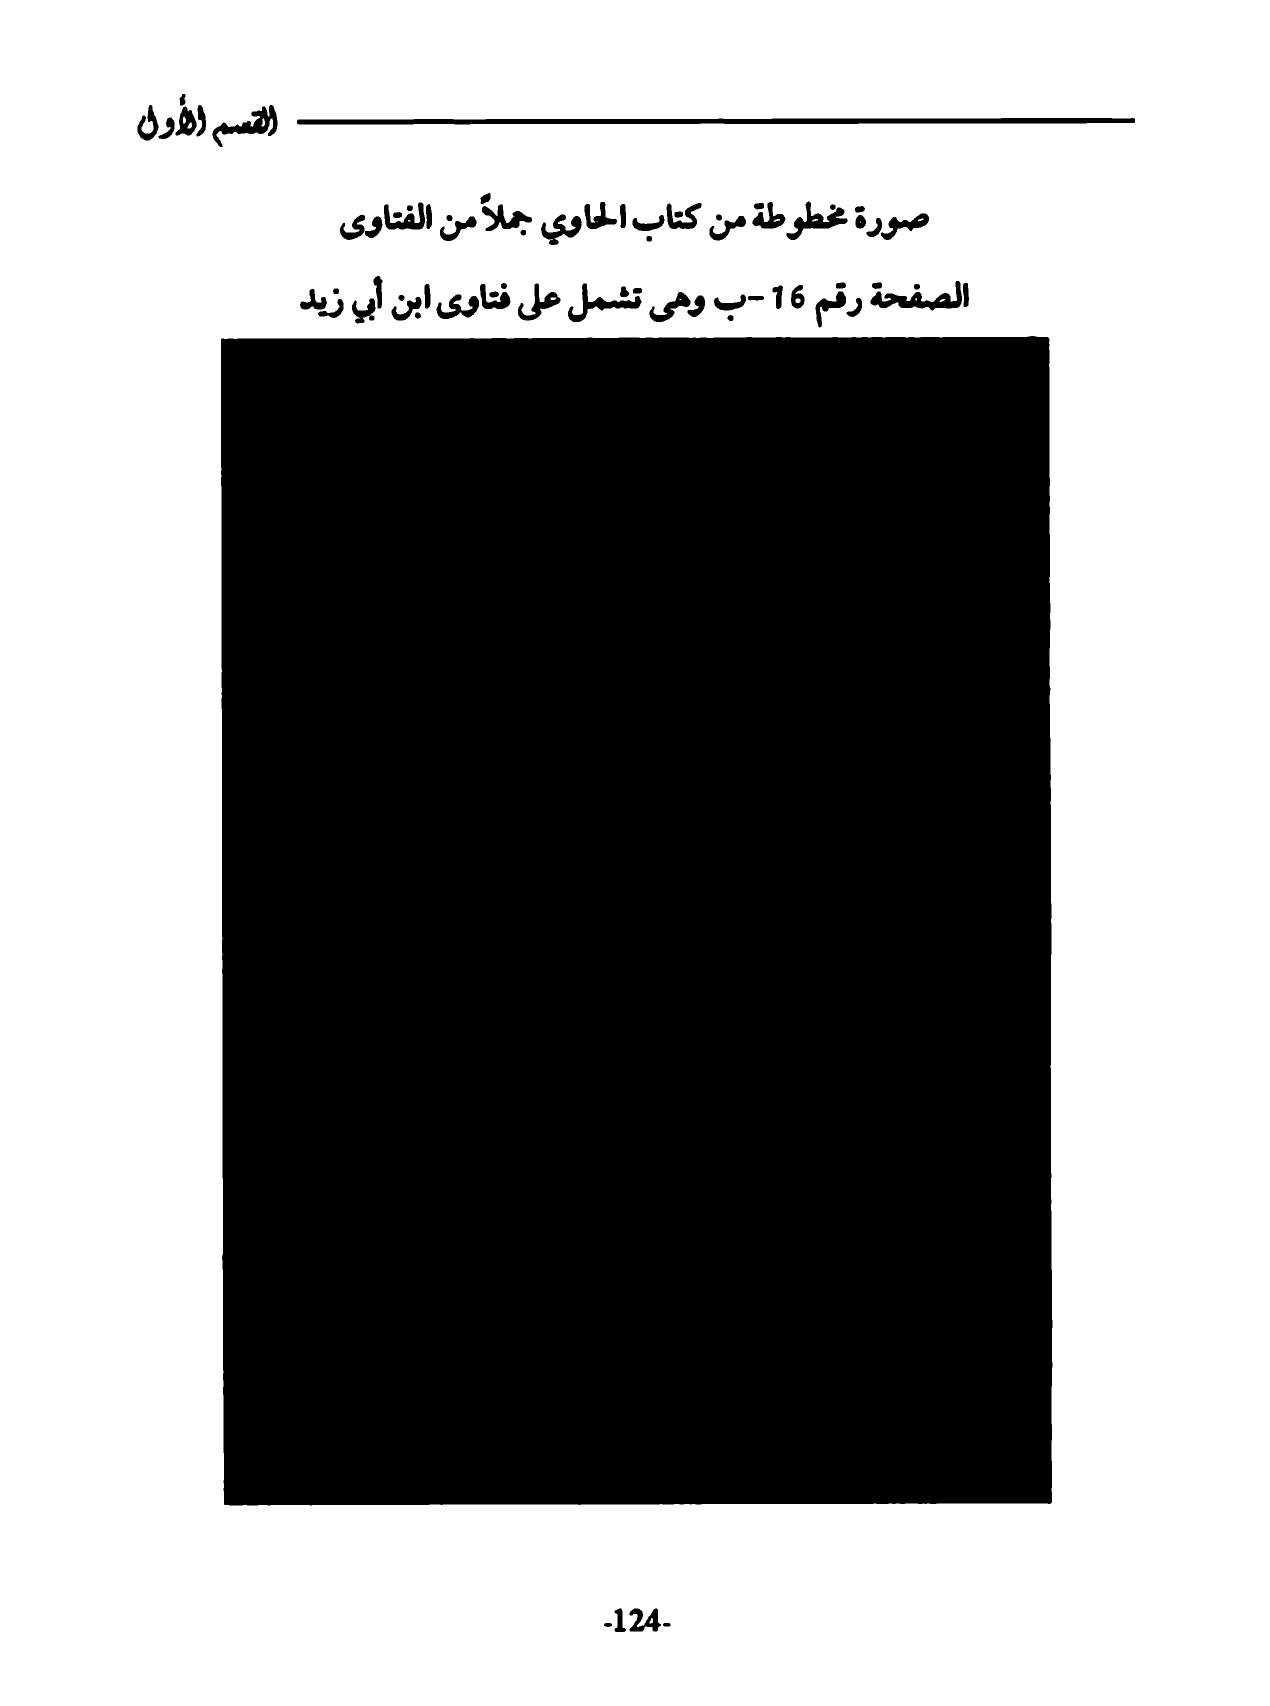 القسم الأول
صورة مخطوطة من كتاب الحاوي جملاً من الفتاوى
الصفحة رقم 16-ب وهى تشمل على فتاوى ابن أبي زيد
-124-